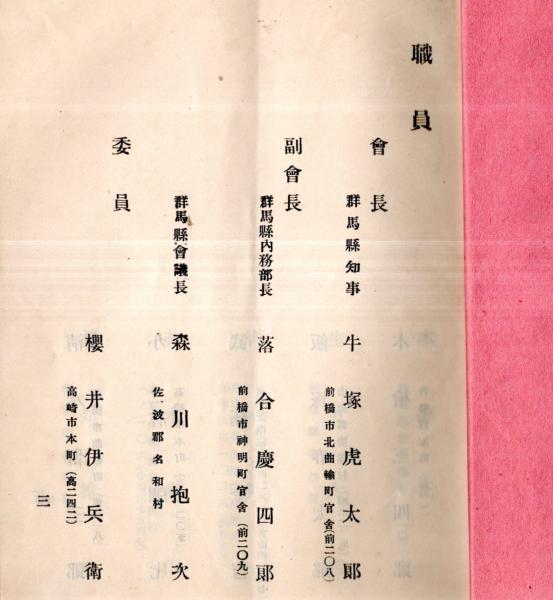 職員
會長
群馬縣知事 牛塚虎太郎
前橋市北曲輪町官舍(前二〇八)
副會長
群馬縣內務部長 落合慶四郎
前橋市神明町官舍(前二〇九)
群馬縣會議長 森川抱次
佐波郡名和村
委員
櫻井伊兵衛
高崎市本町(高二四二)
三